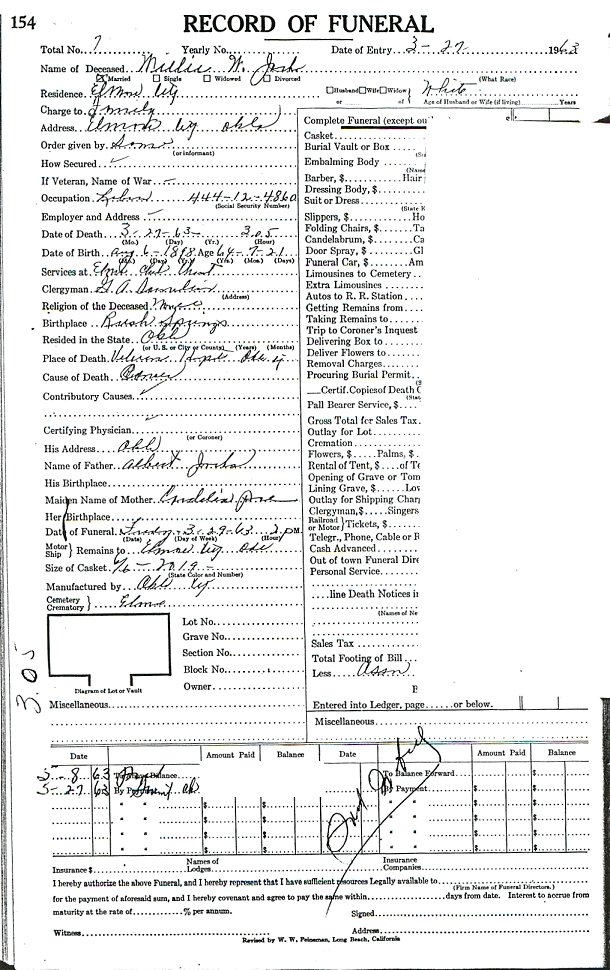 154
RECORD OF FUNERAL
Total No. 7 Yearly No. Date of Entry 3-27 1963
Name of Deceased Willie W.
Married Single Widowed Divorced (What Race)
Residence Elmore City Husband Wife Widow White
or of Age of Husband or Wife (if living) Years
Charge to Family
Address Elmore City Okla
Order given by Same
(or informant)
How Secured
If Veteran, Name of War -
Occupation Labor 444-12-4860
(Social Security Number)
Employer and Address -
Date of Death 3-27-63 3:05
(Mo.) (Day) (Yr.) (Hour)
Date of Birth Aug 6-1898 Age 64-7-21
(Mo.) (Day) (Yr.) (Yrs.) (Mon.) (Days)
Services at
Clergyman
(Address)
Religion of the Deceased
Birthplace Rush Springs
Resided in the State Okl
(or U. S. or City or County) (Years) (Months)
Place of Death Veterans Hospt Okl City
Cause of Death
Contributory Causes
Certifying Physician
(or Coroner)
His Address Okl
Name of Father Albert
His Birthplace
Maiden Name of Mother
Her Birthplace
Date of Funeral 3-29-63 2 PM
(Date) (Day of Week) (Hour)
Motor Ship } Remains to Elmore City Okl
Size of Casket
(State Color and Number)
Manufactured by Okl City
Cemetery
Crematory } Elmore
Diagram of Lot or Vault
Lot No.
Grave No.
Section No.
Block No.
Owner
3.05
Miscellaneous
Complete Funeral (except ou
Casket
Burial Vault or Box
Embalming Body
(Name
Barber, $ Hair
Dressing Body, $
Suit or Dress
(State K
Slippers, $ Ho
Folding Chairs, $ Ta
Candelabrum, $ Ca
Door Spray, $ Gl
Funeral Car, $ Am
Limousines to Cemetery
Extra Limousines
Autos to R. R. Station
Getting Remains from
Taking Remains to
Trip to Coroner's Inquest
Delivering Box to
Deliver Flowers to
Removal Charges
Procuring Burial Permit
Certif. Copies of Death C
(Stat
Pall Bearer Service, $
Gross Total for Sales Tax
Outlay for Lot
Cremation
Flowers, $ Palms, $
Rental of Tent, $ of Te
Opening of Grave or Tomb
Lining Grave, $ Lov
Outlay for Shipping Char
Clergyman, $ Singers
Railroad or Motor } Tickets, $
Telegr., Phone, Cable or R
Cash Advanced
Out of town Funeral Dire
Personal Service
line Death Notices in
(Names of Ne
Sales Tax
Total Footing of Bill
Less
Entered into Ledger, page or below.
Miscellaneous
Date Amount Paid Balance Date Amount Paid Balance
5-8 63 To Balance To Balance Forward
5-27 63 By By Payment
Insurance $ Names of Lodges Insurance Companies
I hereby authorize the above Funeral, and I hereby represent that I have sufficient resources Legally available to
(Firm Name of Funeral Directors.)
for the payment of aforesaid sum, and I hereby covenant and agree to pay the same within days from date. Interest to accrue from
maturity at the rate of % per annum. Signed
Witness Address
Revised by W. W. Peineman, Long Beach, California